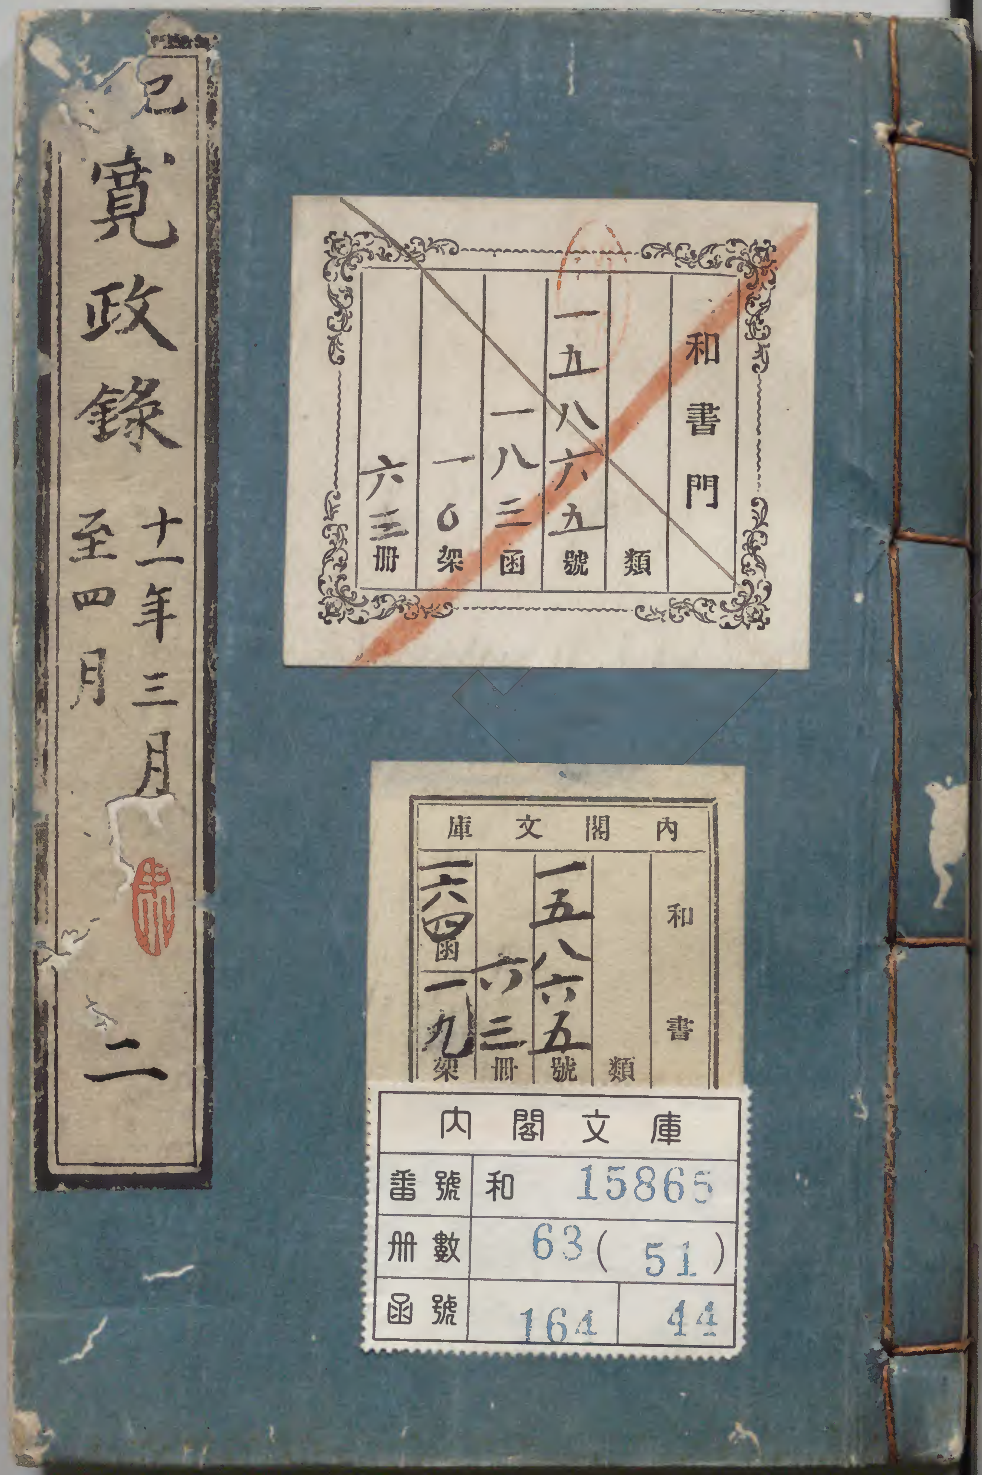 己
寛政錄
十一年三月
至四月
二
和書門
類
一五八六九號
一八三函
一〇架
六三冊
內閣文庫
和書
類
一五八六五號
六三冊
一六四函
一九架
內閣文庫
番號 和 15865
册數 63(51)
函號 164 44